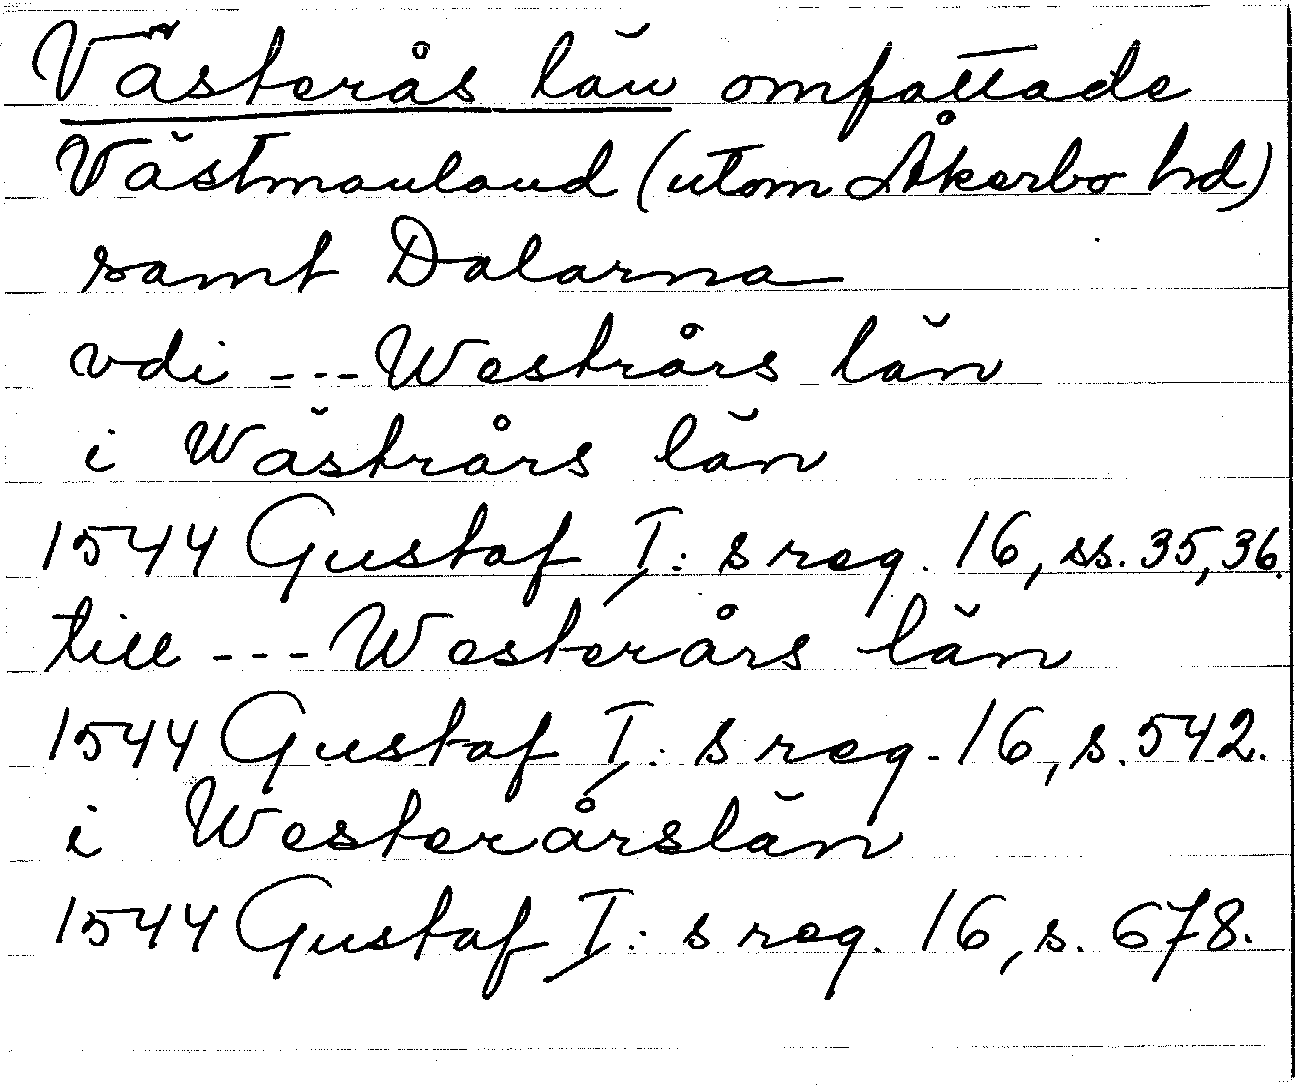 Västerås län omfattade
Västmanland (utom Åkerbo hd)
samt Dalarna
vdi --- Westrårs län
i Wästrårs län
1544 Gustaf I: s reg. 16, ss. 35, 36.
till --- Westerårs län
1544 Gustaf I: s reg. 16, s. 542.
i Westerårslän
1544 Gustaf I: s reg. 16, s. 678.